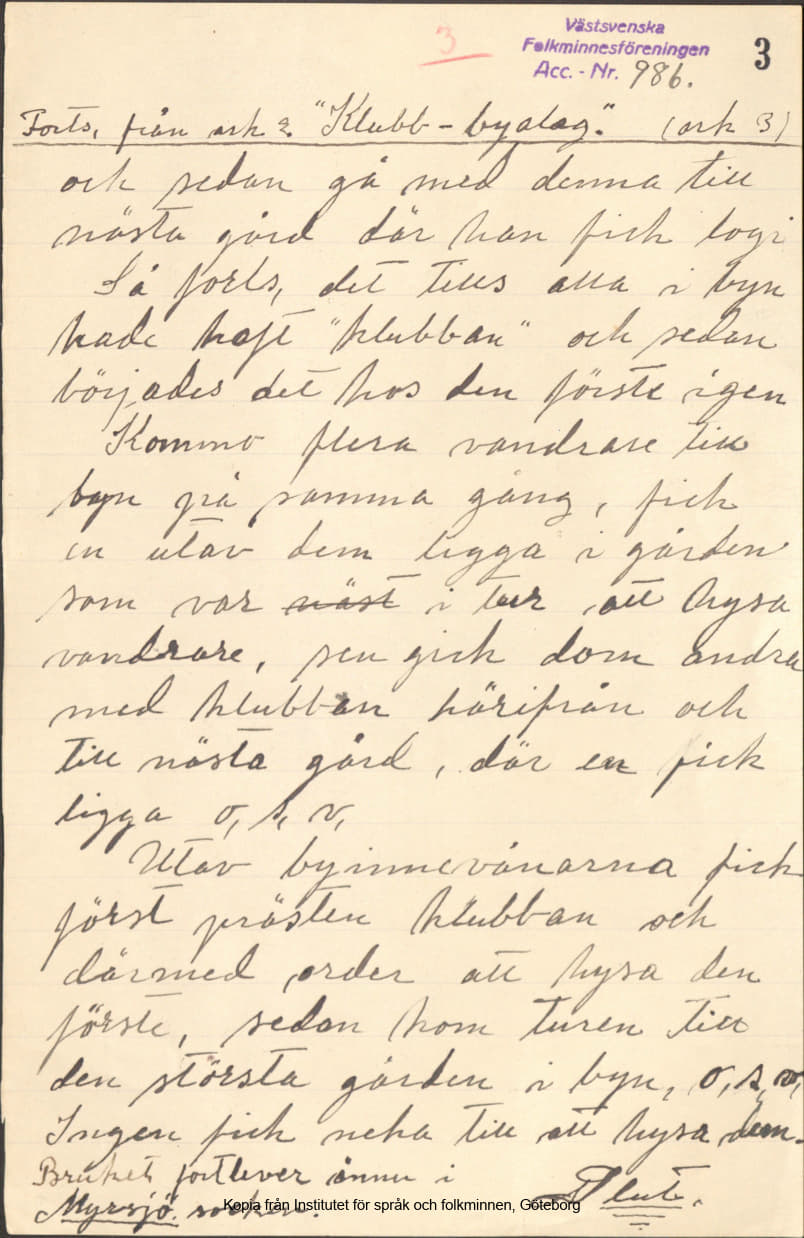 3
Västsvenska
Folkminnesföreningen
Acc. - Nr. 986.
3
Forts, från ark 2. "Klubb-byalag." (ark 3)
och sedan gå med denna till
nästa gård där han fick logi
Så forts, det tills alla i byn
hade haft "klubban" och sedan
började det hos den förste igen
Kommo flera vandrare till
byn på samma gång, fick
en utav dem ligga i gården
som var näst i tur att hysa
vandrare, sen gick dom andra
med klubban härifrån och
till nästa gård, där en fick
ligga o, s, v,
Utav byinnevånarna fick
först prästen klubban och
därmed order att hysa den
förste, sedan kom turen till
den största gården i byn, o, s, v,
Ingen fick neka till att hysa dem.
Bruket fortlever ännu i
Myresjö socken. Slut.
Kopia från Institutet för språk och folkminnen, Göteborg